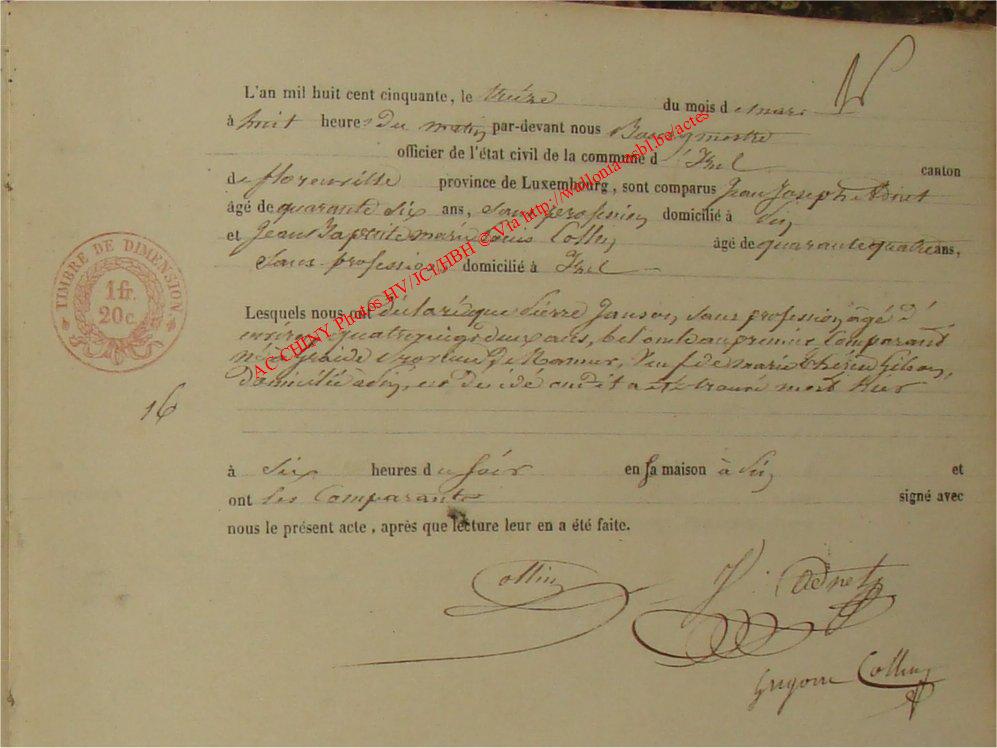 L'an mil huit cent cinquante, le treize du mois de mars
à huit heures du matin par-devant nous Bourgmestre
officier de l'état civil de la commune d'Izel canton
de florenville province de Luxembourg, sont comparus Jean Joseph Adnet
âgé de quarante six ans, sans profession domicilié à
et Jean Baptiste marie Collin âgé de quarante quatre ans,
sans profession domicilié à Izel
TIMBRE DE DIMENSION
1 fr.
20 c.
Lesquels nous ont déclaré que Pierre Janson sans profession agé d'
environ quatre vingt deux ans, bel oncle au premier Comparant
né à province de Namur, veuf de marie thérèse Gilson,
domicilié à est décidé a été trouvé mort hier
16
à six heures du soir en sa maison à et
ont les Comparants signé avec
nous le présent acte, après que lecture leur en a été faite.
Collin J. Adnet
Grégoire Collin
AC CHINY Photos HV/JC1/HBH © Via http://wallonia-asbl.be/actes